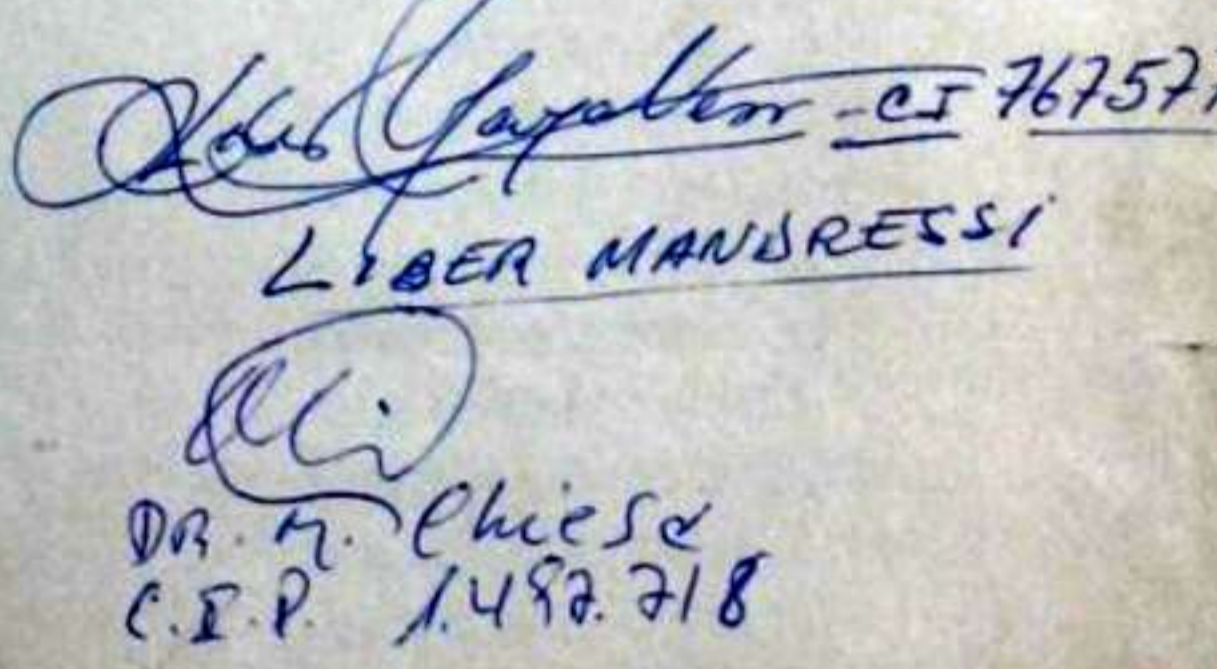 - CI 767577
LIBER MANDRESSI
DR. M. Chiesa
C.I.P. 1.492.718